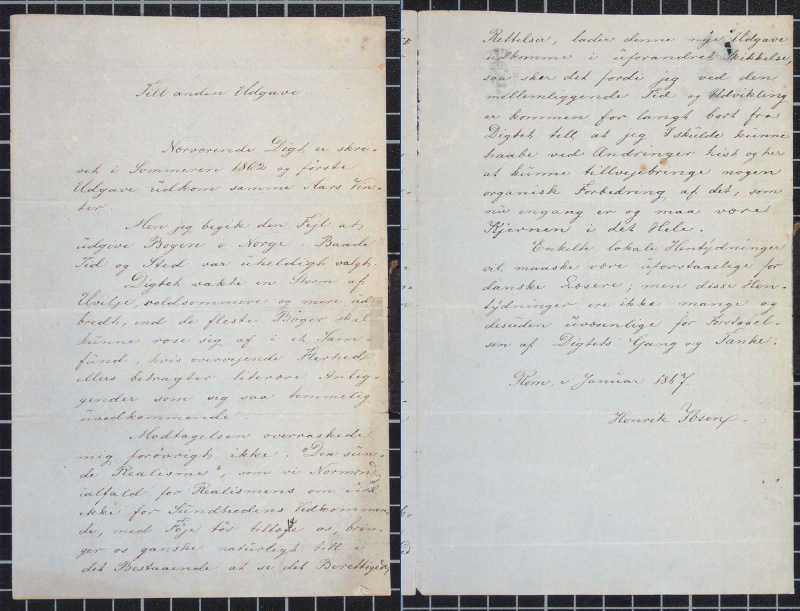 Till anden Udgave
Nærværende Digt er skre-
vet i Sommeren 1862 og første
Udgave udkom samme Aars Vin-
ter.
Men jeg begik den Fejl at
udgive Bogen i Norge. Baade
Tid og Sted var uheldigt valgt.
Digtet vakte en Storm af
Uvilje, voldsommere og mere ud-
bredt, end de fleste Bøger skal
kunne rose sig af i et Sam-
fund, hvis overvejende Flerhed
ellers betragter literære Anlig-
gender som sig saa temmelig
uvedkommende.
Modtagelsen overraskede
mig forøvrigt ikke. "Den sun-
de Realisme", som vi Normænd
ialfald for Realismens om end
ikke for Sundhedens Vedkommen-
de, med Føje tør tillægge os, brin-
ger os ganske naturligt till i
det Bestaaende at se det Berettigede,
Rettelser, lader denne nye Udgave
udkomme i uforandret Skikkelse,
saa sker det fordi jeg ved den
mellemliggende Tid og Udvikling
er kommen for langt bort fra
Digtet till at jeg skulde kunne
haabe ved Ændringer hist og her
at kunne tillvejebringe nogen
organisk Forbedring af det, som
nu engang er og maa være
Kjernen i det Hele.
Enkelte lokale Hentydninger
vil maaske være uforstaaelige for
danske Læsere; men disse Hen-
tydninger ere ikke mange og
desuden uvæsenlige for Forstaael-
sen af Digtets Gang og Tanke.
Rom, i Januar 1867.
Henrik Ibsen.